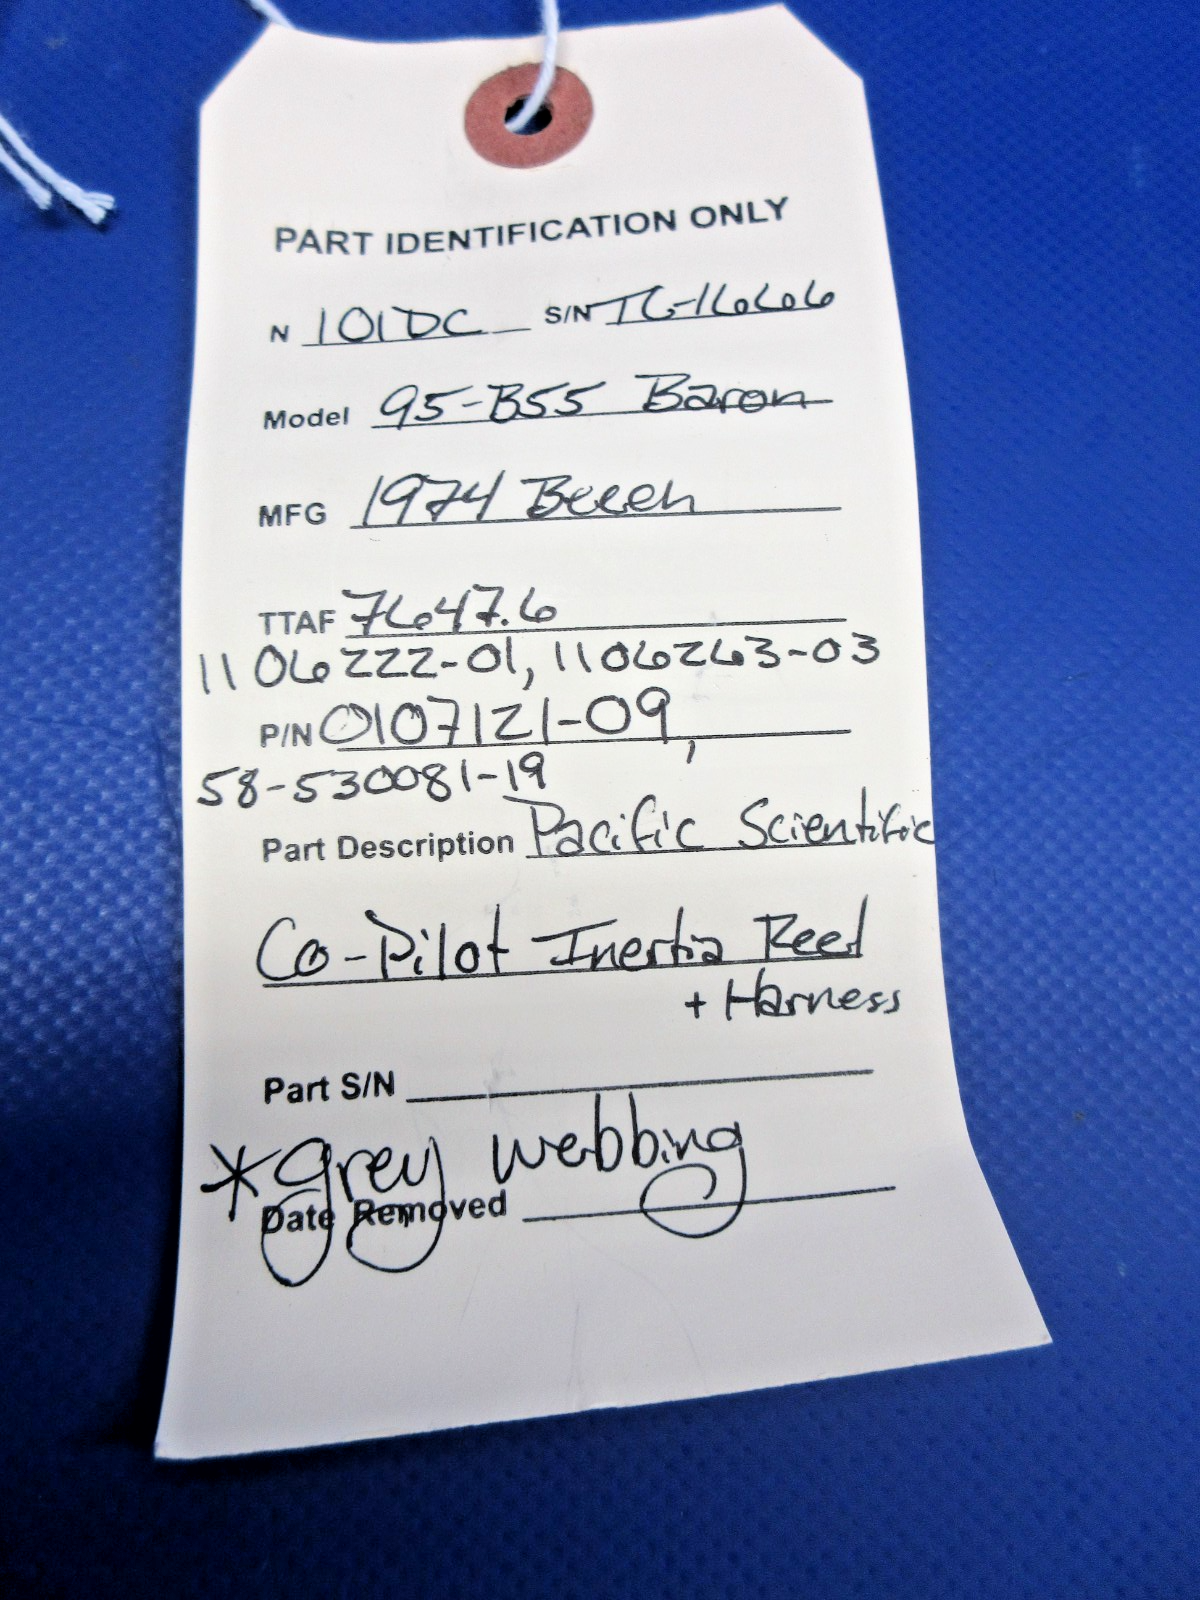 PART IDENTIFICATION ONLY
N 101DC S/N TC-1666
Model 95-B55 Baron
MFG 1974 Beech
TTAF 7647.6
1106222-01, 1106263-03
P/N 0107121-09,
58-530081-19
Part Description Pacific Scientific
Co-Pilot Inertia Reel
+ Harness
Part S/N
*grey webbing
Date Removed